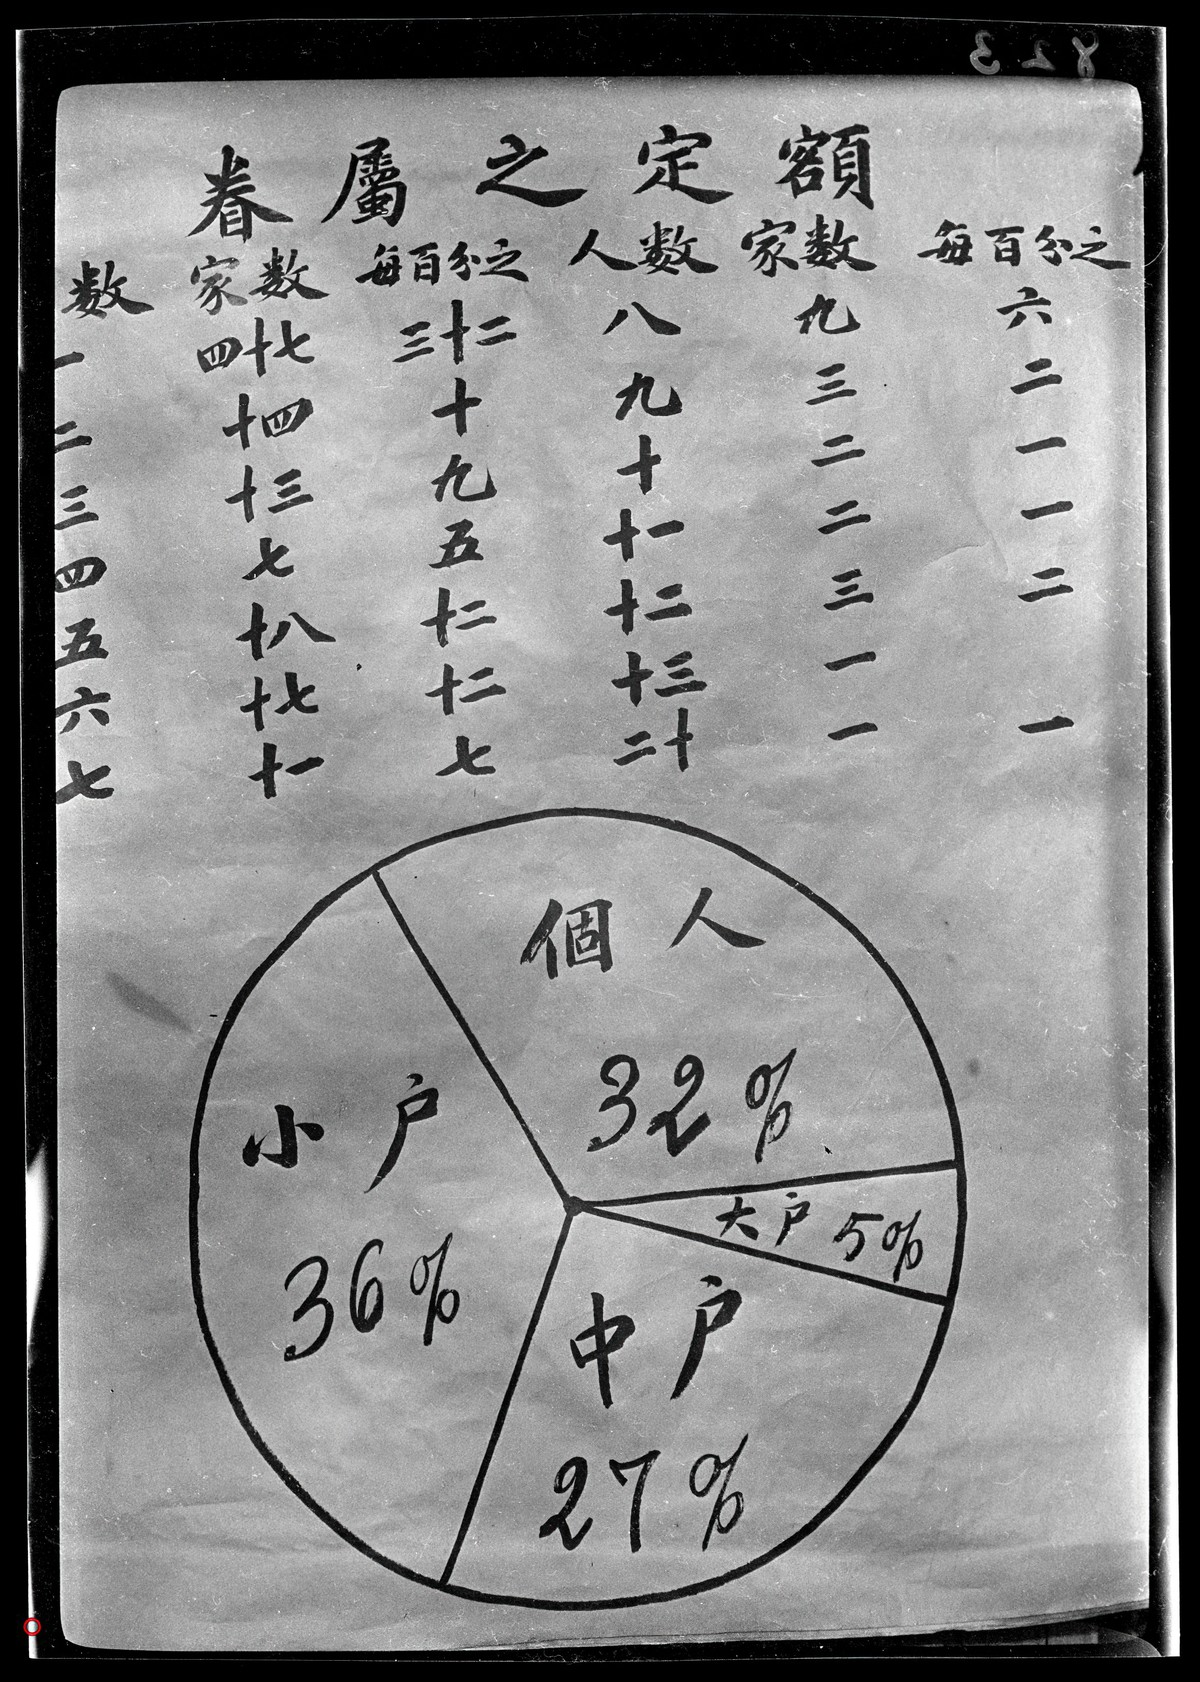 823
眷屬之定額
数 家数 每百分之 人数 家数 每百分之
一 四十七 三十二 八 九 六
二 十四 十 九 三 二
三 十三 九 十 二 一
四 七 五 十一 二 一
五 十八 十二 十二 三 二
六 十七 十二 十三 一
七 十一 七 二十 一 一
個人
32%
小户
36%
大户 5%
中户
27%